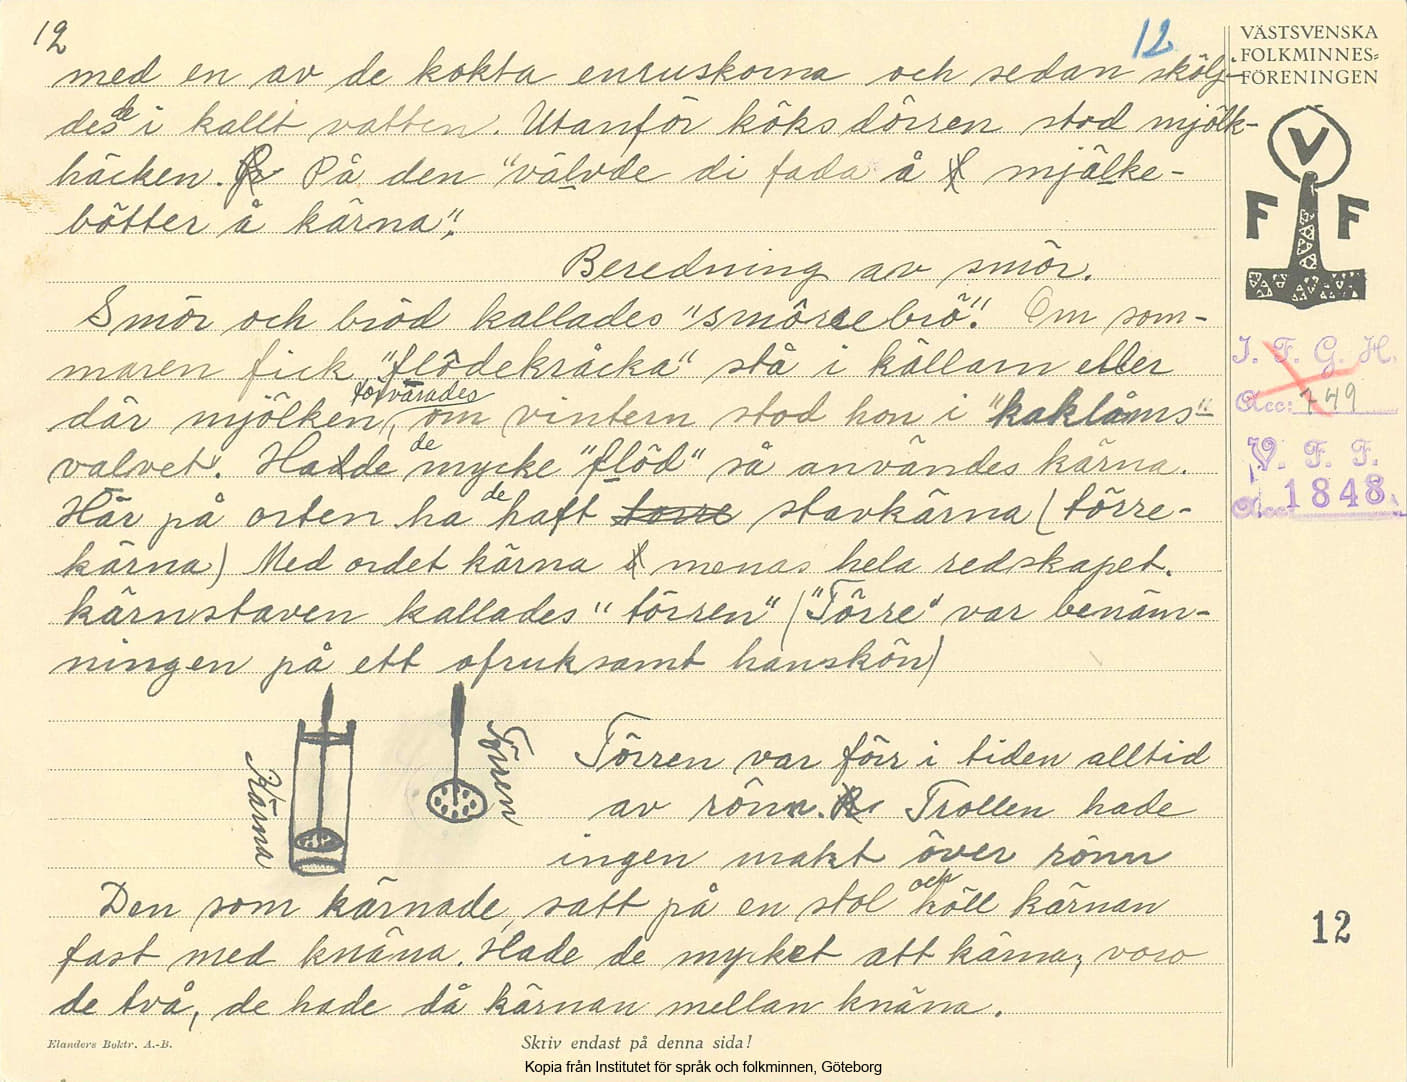 12
12
VÄSTSVENSKA
FOLKMINNES=
FÖRENINGEN
med en av de kokta enruskorna och sedan skölj-
des de i kallt vatten. Utanför köksdörren stod mjölk-
häcken. På den "välvde di fada å mjälke-
bötter å kärna".
Beredning av smör.
Smör och bröd kallades "smörrebrö". Om som-
maren fick "flödekråcka" stå i källarn eller
där mjölken förvarades, om vintern stod hon i "kaklåms-
valvet". Hadde de mycke "flöd" så användes kärna.
Här på orten ha de haft torre stavkärna (törre-
kärna) Med ordet kärna menas hela redskapet.
kärnstaven kallades "törren" ("Törre" var benäm-
ningen på ett ofruksamt hankön)
Kärna
Törren
Törren var förr i tiden alltid
av rönn. Trollen hade
ingen makt över rönn
Den som kärnade, satt på en stol och höll kärnan
fast med knäna. Hade de mycket att kärna, voro
de två, de hade då kärnan mellan knäna.
V
F F
I. F. G. H.
Acc: 749
V. F. F.
Acc: 1848
12
Elanders Boktr. A.-B.
Skriv endast på denna sida!
Kopia från Institutet för språk och folkminnen, Göteborg